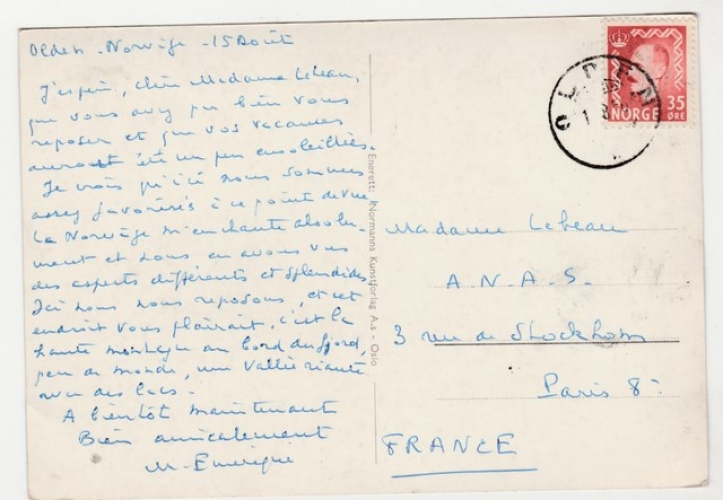 Olden - Norvège - 15 Août
J'espère, chère Madame Lebeau,
que vous avez pu bien vous
reposer et que vos vacances
auront été un peu ensoleillées.
Je crois qu'ici nous sommes
assez favorisés à ce point de vue
La Norvège m'enchante absolu-
ment et nous en avons vus
des aspects différents et splendides.
Ici nous nous reposons, et cet
endroit vous plairait. c'est la
haute montagne au bord du fjord,
peu de monde, une vallée riante
avec des lacs.
A bientôt maintenant
Bien amicalement
Enerett: Normanns Kunstforlag A.s - Oslo
OLDEN
NORGE 35
ØRE
Madame Lebeau
A.N.A.S.
3 rue de Stockholm
Paris 8:
FRANCE